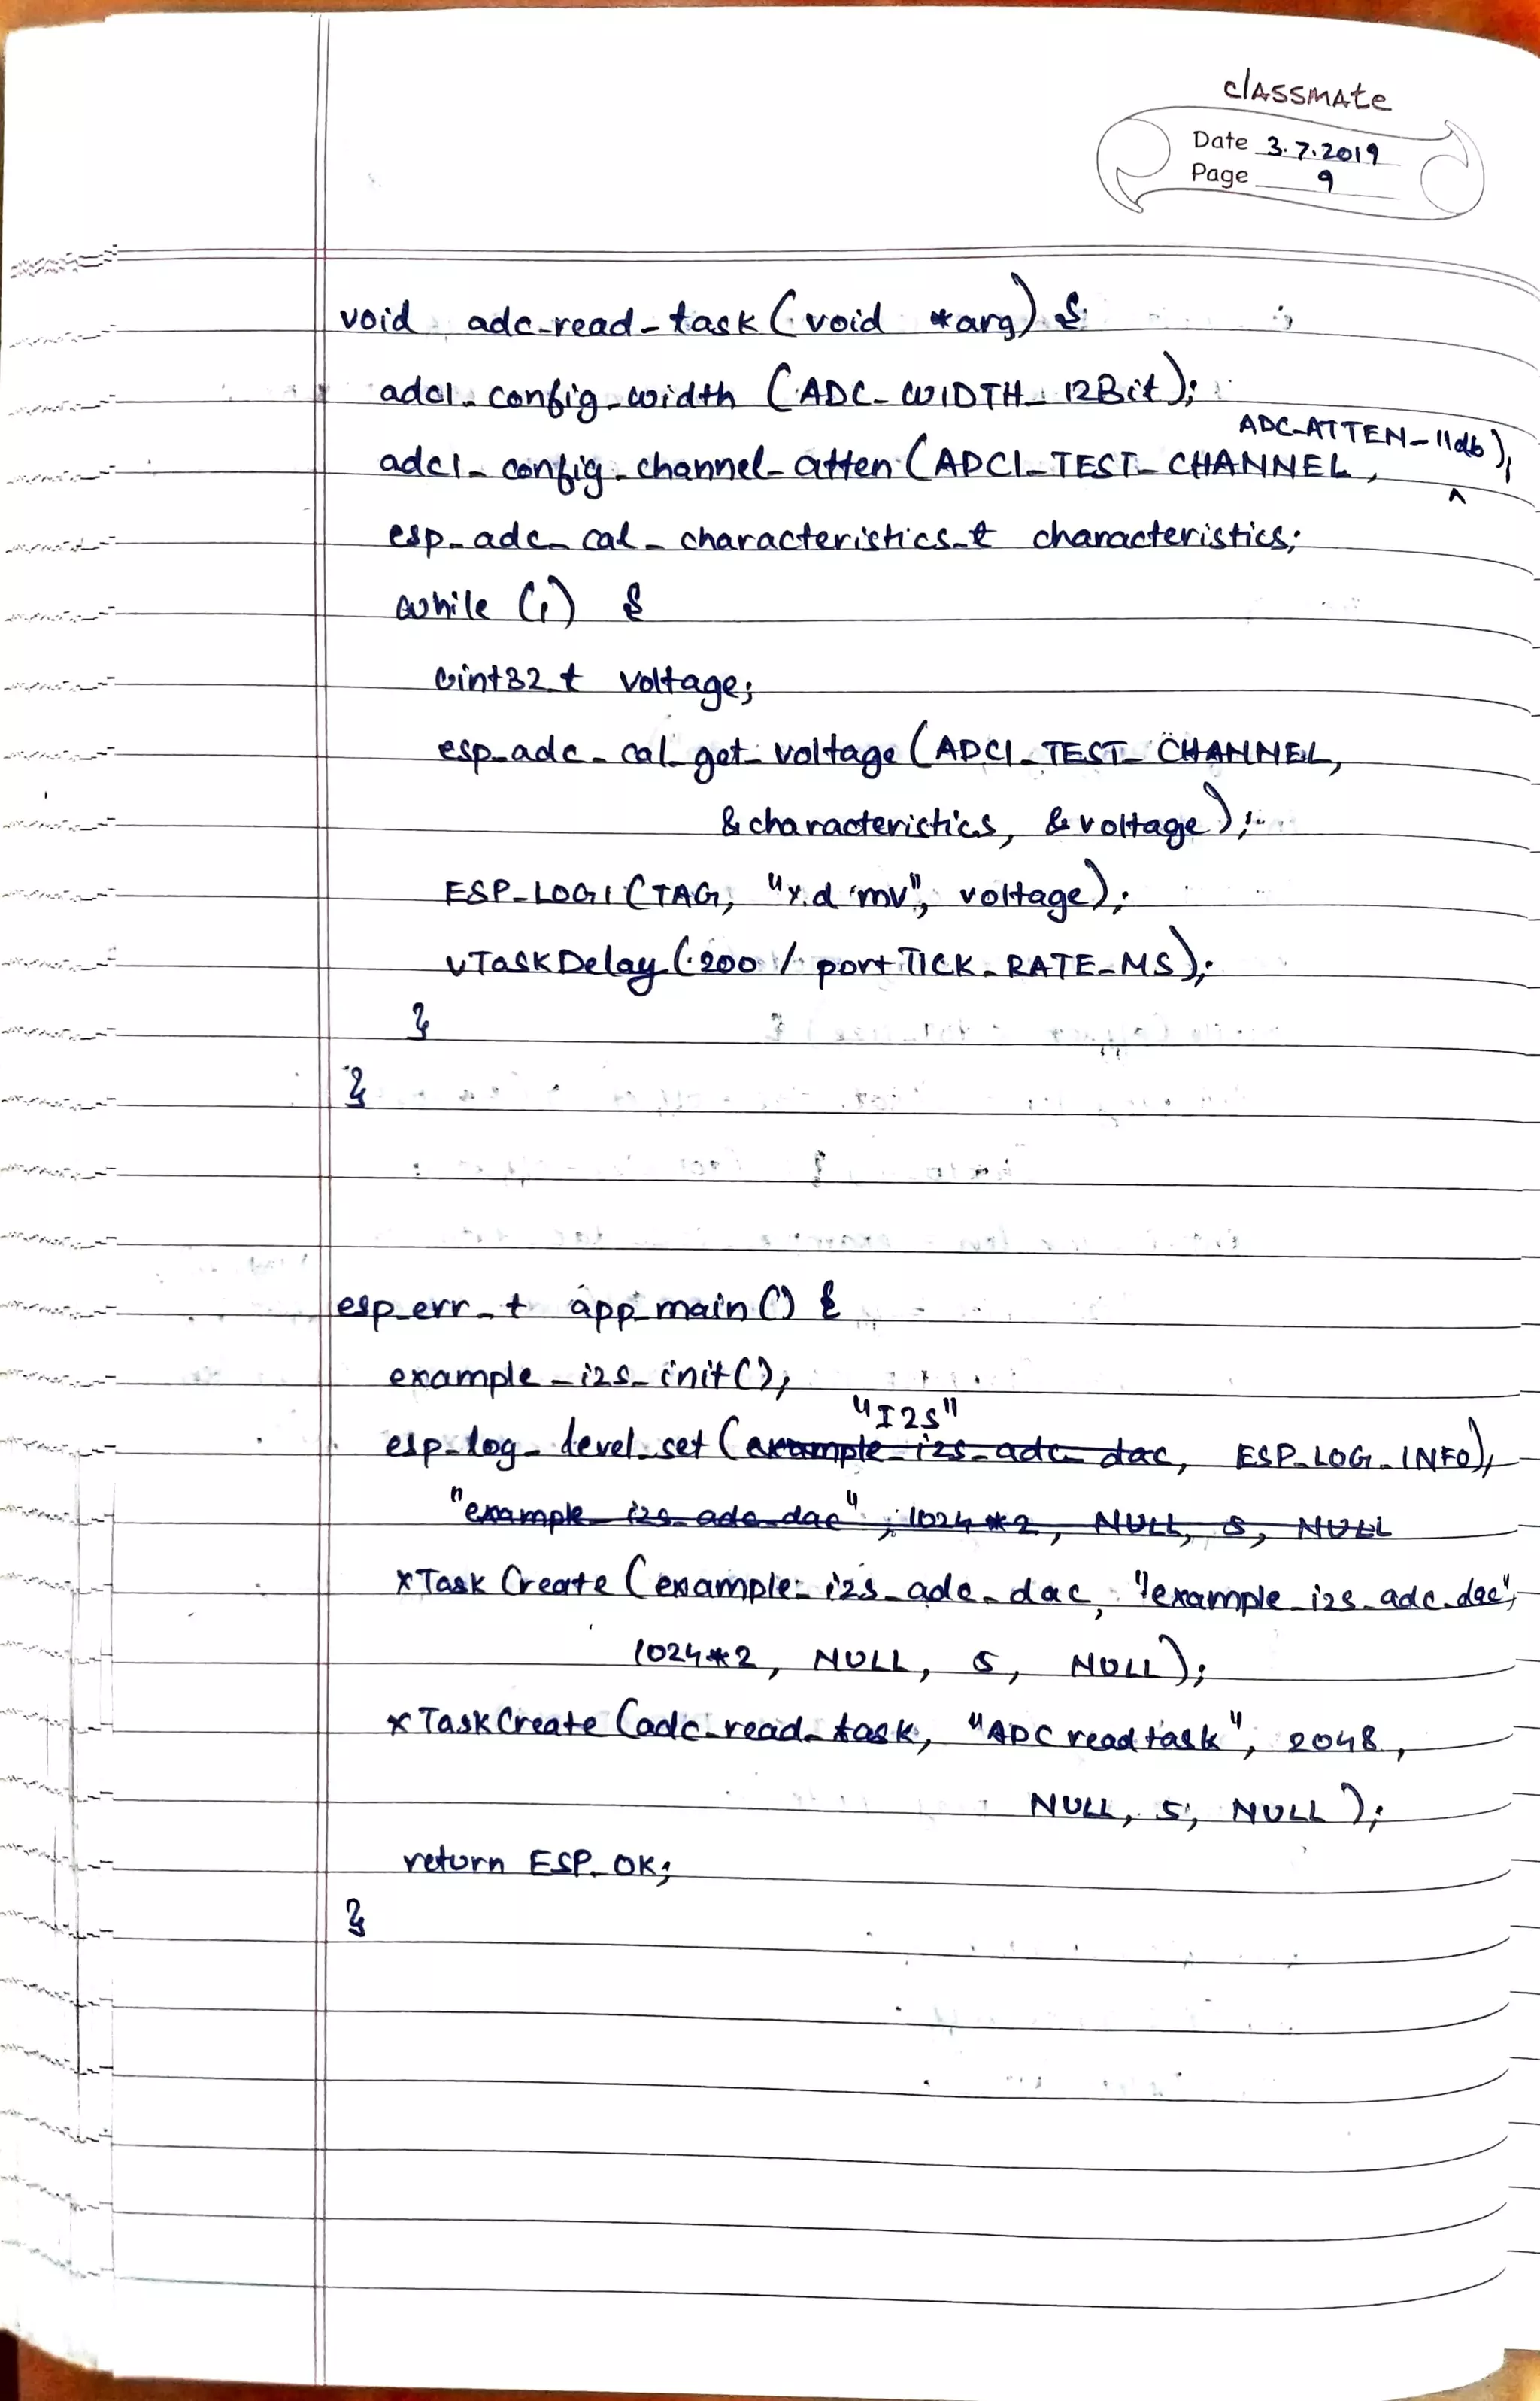 classmate
Date 3.7.2019
Page 9
void adc_read_task (void *arg) {
adc1_config_width (ADC_WIDTH_12Bit);
ADC_ATTEN_11db);
adc1_config_channel_atten (ADC1_TEST_CHANNEL, ^
esp_adc_cal_characteristics_t characteristics;
while (1) {
uint32_t voltage;
esp_adc_cal_get_voltage (ADC1_TEST_CHANNEL,
&characteristics, &voltage);
ESP_LOGI (TAG, "%d mv", voltage);
vTaskDelay (200 / portTICK_RATE_MS);
}
}
esp_err_t app_main () {
example_i2s_init();
"I2S"
esp_log_level_set (example_i2s_adc_dac, ESP_LOG_INFO);
"example_i2s_adc_dac", 1024*2, NULL, 5, NULL
xTaskCreate (example_i2s_adc_dac, "example_i2s_adc_dac",
1024*2, NULL, 5, NULL);
xTaskCreate (adc_read_task, "ADC read task", 2048,
NULL, 5, NULL);
return ESP_OK;
}